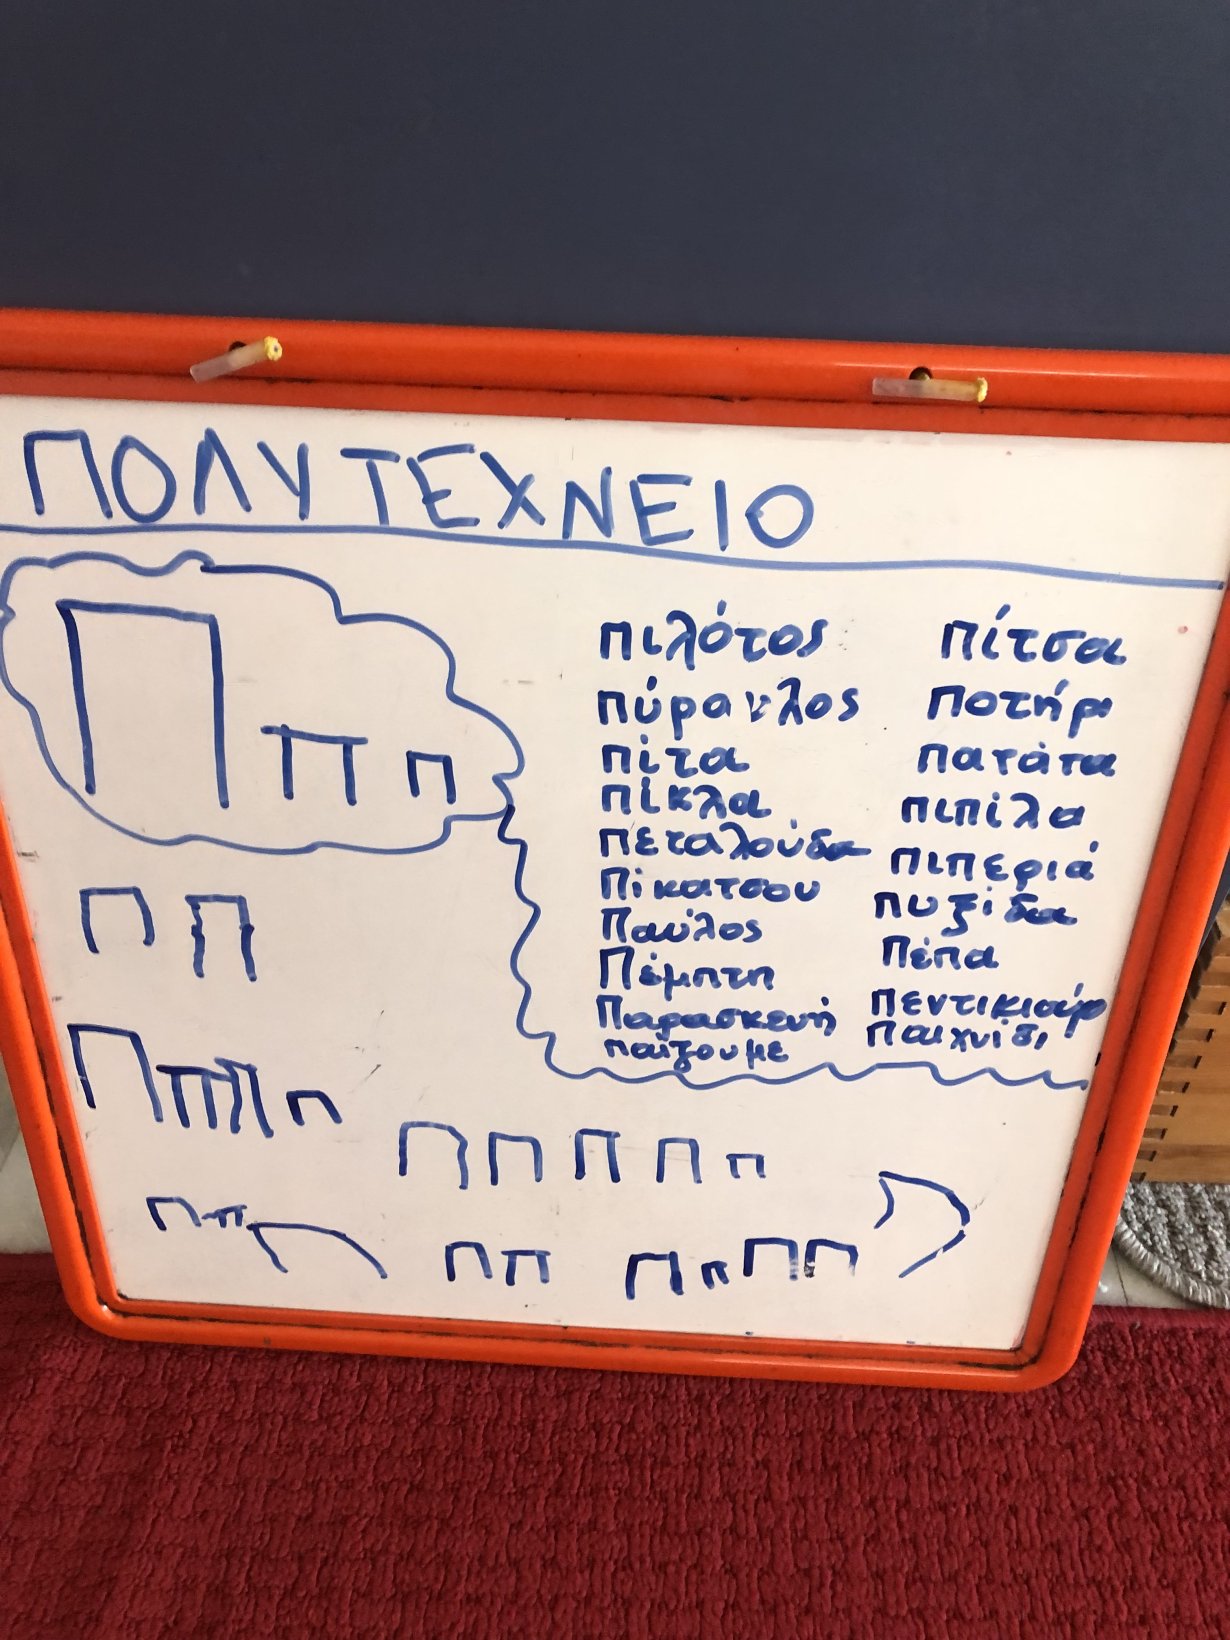 ΠΟΛΥΤΕΧΝΕΙΟ
Π π π
πιλότος
πύραυλος
πίτα
πίκλα
πεταλούδα
Πίκατσου
Παύλος
Πέμπτη
Παρασκευή
παίζουμε
πίτσα
ποτήρι
πατάτα
πιπίλα
πιπεριά
πυξίδα
Πέπα
πεντικιούρ
παιχνίδι
Π Π
Π π π π
Π Π Π Π π
Π π Π
Π Π
Π π Π Π
Π